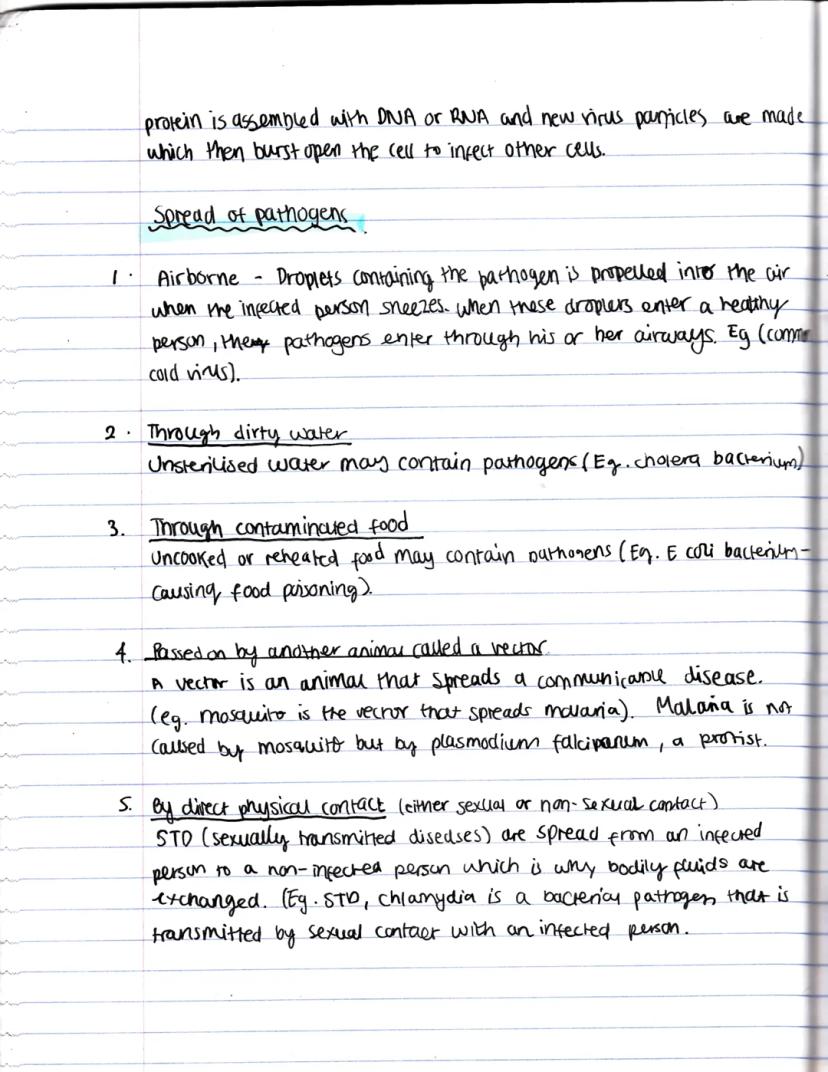 protein is assembled with DNA or RNA and new virus particles are made
which then burst open the cell to infect other cells.
Spread of pathogens
1. Airborne - Droplets containing the pathogen is propelled into the air
when the infected person sneezes. When these droplets enter a healthy
person, the pathogens enter through his or her airways. Eg (comm
cold virus).
2. Through dirty water
Unsterilised water may contain pathogens (Eg. cholera bacterium)
3. Through contaminated food
Uncooked or reheated food may contain pathogens (Eg. E coli bacterium-
causing food poisoning).
4. Passed on by another animal called a vector.
A vector is an animal that spreads a communicable disease.
(eg. mosquito is the vector that spreads malaria). Malaria is not
caused by mosquito but by plasmodium falciparum, a protist.
5. By direct physical contact (either sexual or non-sexual contact)
STD (sexually transmitted diseases) are spread from an infected
person to a non-infected person which is why bodily fluids are
exchanged. (Eg. STD, chlamydia is a bacterial pathogen that is
transmitted by sexual contact with an infected person.